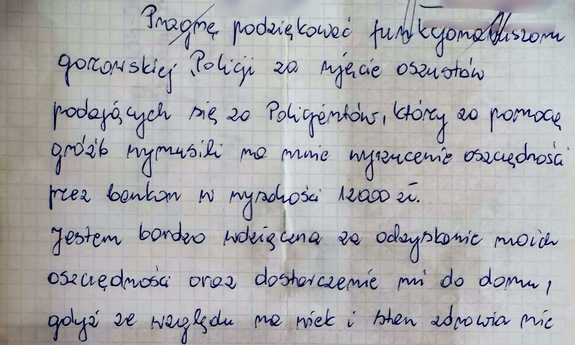 Pragnę podziękować funkcjonariuszom
gorzowskiej Policji za ujęcie oszustów
podających się za Policjantów, który za pomocą
gróźb wymusili na mnie wyrzucenie oszczędności
przez balkon w wysokości 12000 zł.
Jestem bardzo wdzięczna za odzyskanie moich
oszczędności oraz dostarczenie mi do domu,
gdyż ze względu na wiek i stan zdrowia nie